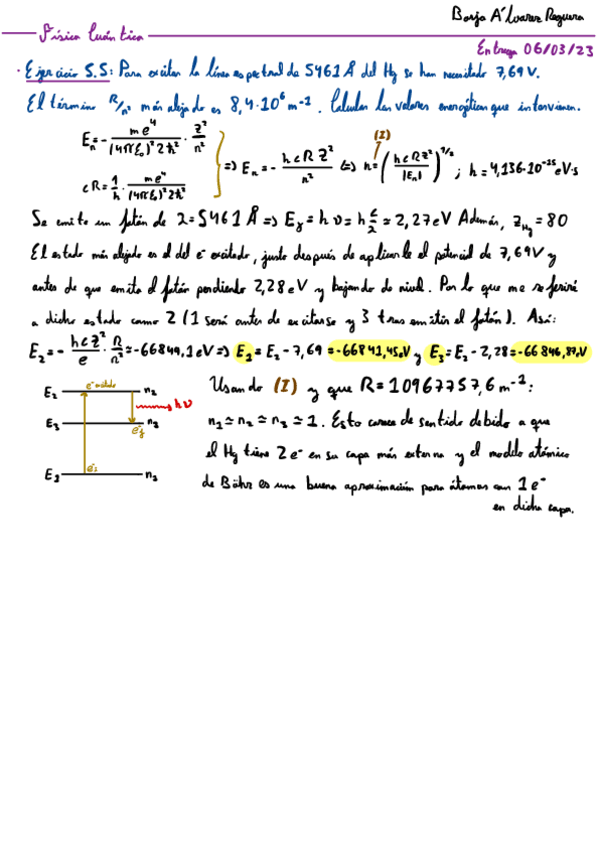 Borja Álvarez Reguera
Física Cuántica
Entrega 06/03/23
· Ejercicio 5.5: Para excitar la línea espectral de 5461 Å del Hg se han necesitado 7,69 V.
El término R/n² más alejado es 8,4·10⁶ m⁻¹. Calcular los valores energéticos que intervienen.
Eₙ = - me⁴/((4πε₀)² 2ħ²) · Z²/n²
cR = 1/h · me⁴/((4πε₀)² 2ħ²)
=> Eₙ = - hcRZ²/n² <=> n = (hcRZ²/|Eₙ|)^1/2 ; h = 4,136·10⁻¹⁵ eV·s
(I)
Se emite un fotón de λ = 5461 Å => Eᵧ = hν = h c/λ ≃ 2,27 eV Además, Z_Hg = 80
El estado más alejado es el del e⁻ excitado, justo después de aplicarle el potencial de 7,69 V y
antes de que emita el fotón perdiendo 2,28 eV y bajando de nivel. Por lo que me referiré
a dicho estado como 2 (1 será antes de excitarse y 3 tras emitir el fotón). Así:
E₂ = - hcZ²/e · R/n² ≃ -66849,1 eV => E₁ = E₂ - 7,69 = -66841,45 eV y E₃ = E₂ - 2,28 = -66846,87 eV
E₂ e⁻ excitado n₂
hν
E₃ e⁻f n₃
E₁ e⁻i n₁
Usando (I) y que R = 10967757,6 m⁻¹:
n₁ ≃ n₂ ≃ n₃ ≃ 1. Esto carece de sentido debido a que
el Hg tiene 2 e⁻ en su capa más externa y el modelo atómico
de Böhr es una buena aproximación para átomos con 1 e⁻
en dicha capa.